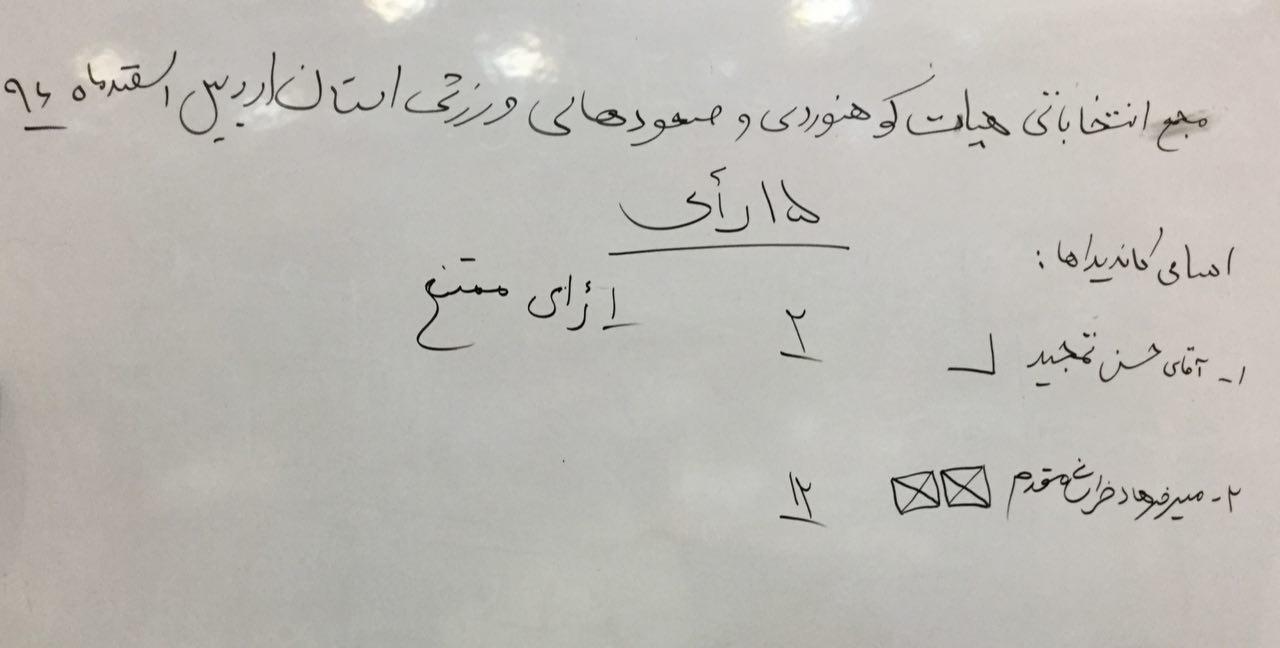 مجمع انتخاباتی هیات کوهنوردی و صعودهای ورزشی استان اردبیل اسفندماه ۹۶
۱۵ رأی
اسامی کاندیداها:
۱ آرای ممتنع
۱- آقای حسن تمجید ۲
۲- میرفرهاد فراغ مقدم ۱۲